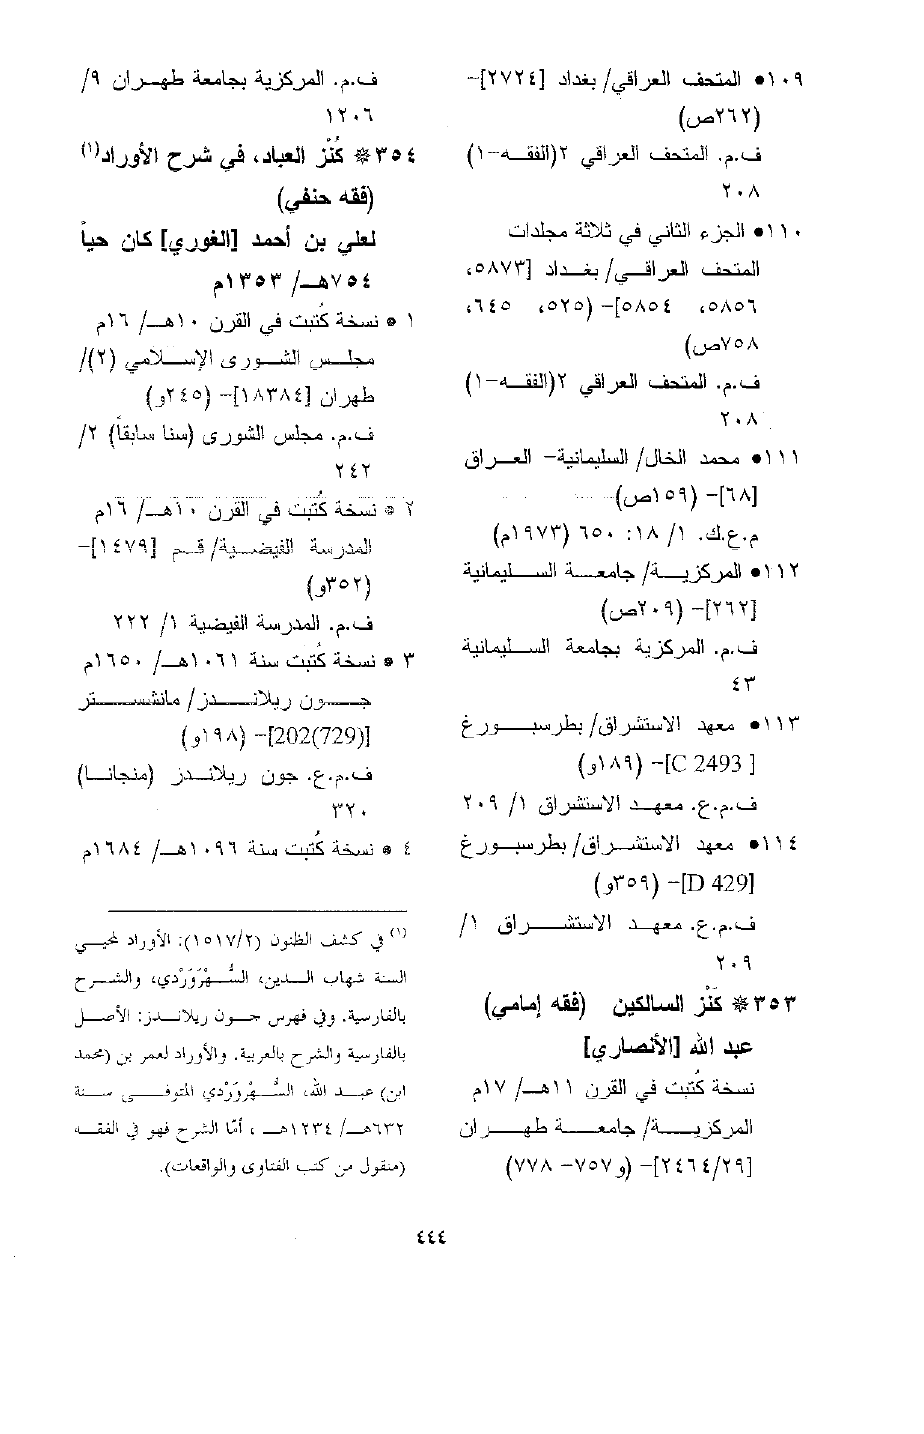 ١٠٩● المتحف العراقي/ بغداد [٢٧٢٤]-
(٢٦٢ص)
ف.م. المتحف العراقي ٢(الفقه-١)
٢٠٨
١١٠● الجزء الثاني في ثلاثة مجلدات
المتحف العراقي/ بغداد [٥٨٧٣،
٥٨٥٦، ٥٨٥٤]- (٥٢٥، ٦٤٥،
٧٥٨ص)
ف.م. المتحف العراقي ٢(الفقه-١)
٢٠٨
١١١● محمد الخال/ السليمانية- العراق
[٦٨]- (١٥٩ص)
م.ع.ك. ١/ ١٨: ٦٥٠ (١٩٧٣م)
١١٢● المركزية/ جامعة السليمانية
[٢٦٢]- (٢٠٩ص)
ف.م. المركزية بجامعة السليمانية
٤٣
١١٣● معهد الاستشراق/ بطرسبورغ
[C 2493 ]- (١٨٩و)
ف.م.ع. معهد الاستشراق ١/ ٢٠٩
١١٤● معهد الاستشراق/ بطرسبورغ
[D 429]- (٣٥٩و)
ف.م.ع. معهد الاستشراق ١/
٢٠٩
٣٥٣* كَنْز السالكين (فقه إمامي)
عبد الله [الأنصاري]
نسخة كُتبت في القرن ١١هـ/ ١٧م
المركزية/ جامعة طهران
[٢٤٦٤/٢٩]- (و٧٥٧- ٧٧٨)
ف.م. المركزية بجامعة طهران ٩/
١٢٠٦
٣٥٤* كُنْز العباد، في شرح الأوراد(١)
(فقه حنفي)
لعلي بن أحمد [الغوري] كان حياً
٧٥٤هـ/ ١٣٥٣م
١ * نسخة كُتبت في القرن ١٠هـ/ ١٦م
مجلس الشورى الإسلامي (٢)/
طهران [١٨٣٨٤]- (٢٤٥و)
ف.م. مجلس الشورى (سنا سابقاً) ٢/
٢٤٢
٢ * نسخة كُتبت في القرن ١٠هـ/ ١٦م
المدرسة الفيضية/ قم [١٤٧٩]-
(٣٥٢و)
ف.م. المدرسة الفيضية ١/ ٢٢٢
٣ * نسخة كُتبت سنة ١٠٦١هـ/ ١٦٥٠م
جون ريلاندز/ مانشستر
[202(729)]- (١٩٨و)
ف.م.ع. جون ريلاندز (منجانا)
٣٢٠
٤ * نسخة كُتبت سنة ١٠٩٦هـ/ ١٦٨٤م
(١) في كشف الظنون (١٥١٧/٢): الأوراد لمحيي
السنة شهاب الدين، السُّهْرَوَرْدي، والشرح
بالفارسية. وفي فهرس جون ريلاندز: الأصل
بالفارسية والشرح بالعربية. والأوراد لعمر بن (محمد
ابن) عبد الله، السُّهْرَوَرْدي المتوفى سنة
٦٣٢هـ/ ١٢٣٤هـ ، أمّا الشرح فهو في الفقه
(منقول من كتب الفتاوى والواقعات).
٤٤٤